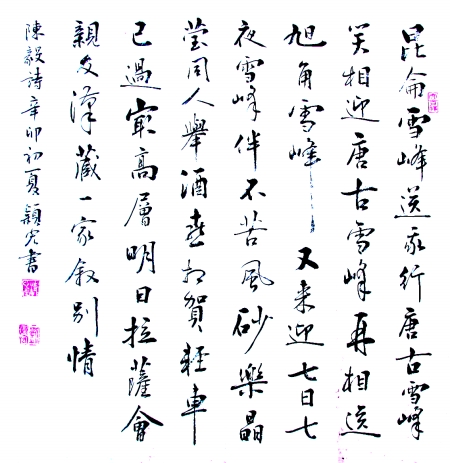 昆侖雪峰送我行唐古雪峰
笑相迎唐古雪峰再相送
旭角雪峰又来迎七日七
夜雪峰伴不苦風砂樂晶
莹同人舉酒喜相賀輕車
已過最高層明日拉薩會
親友漢藏一家叙别情
陳毅詩辛卯初夏穎書